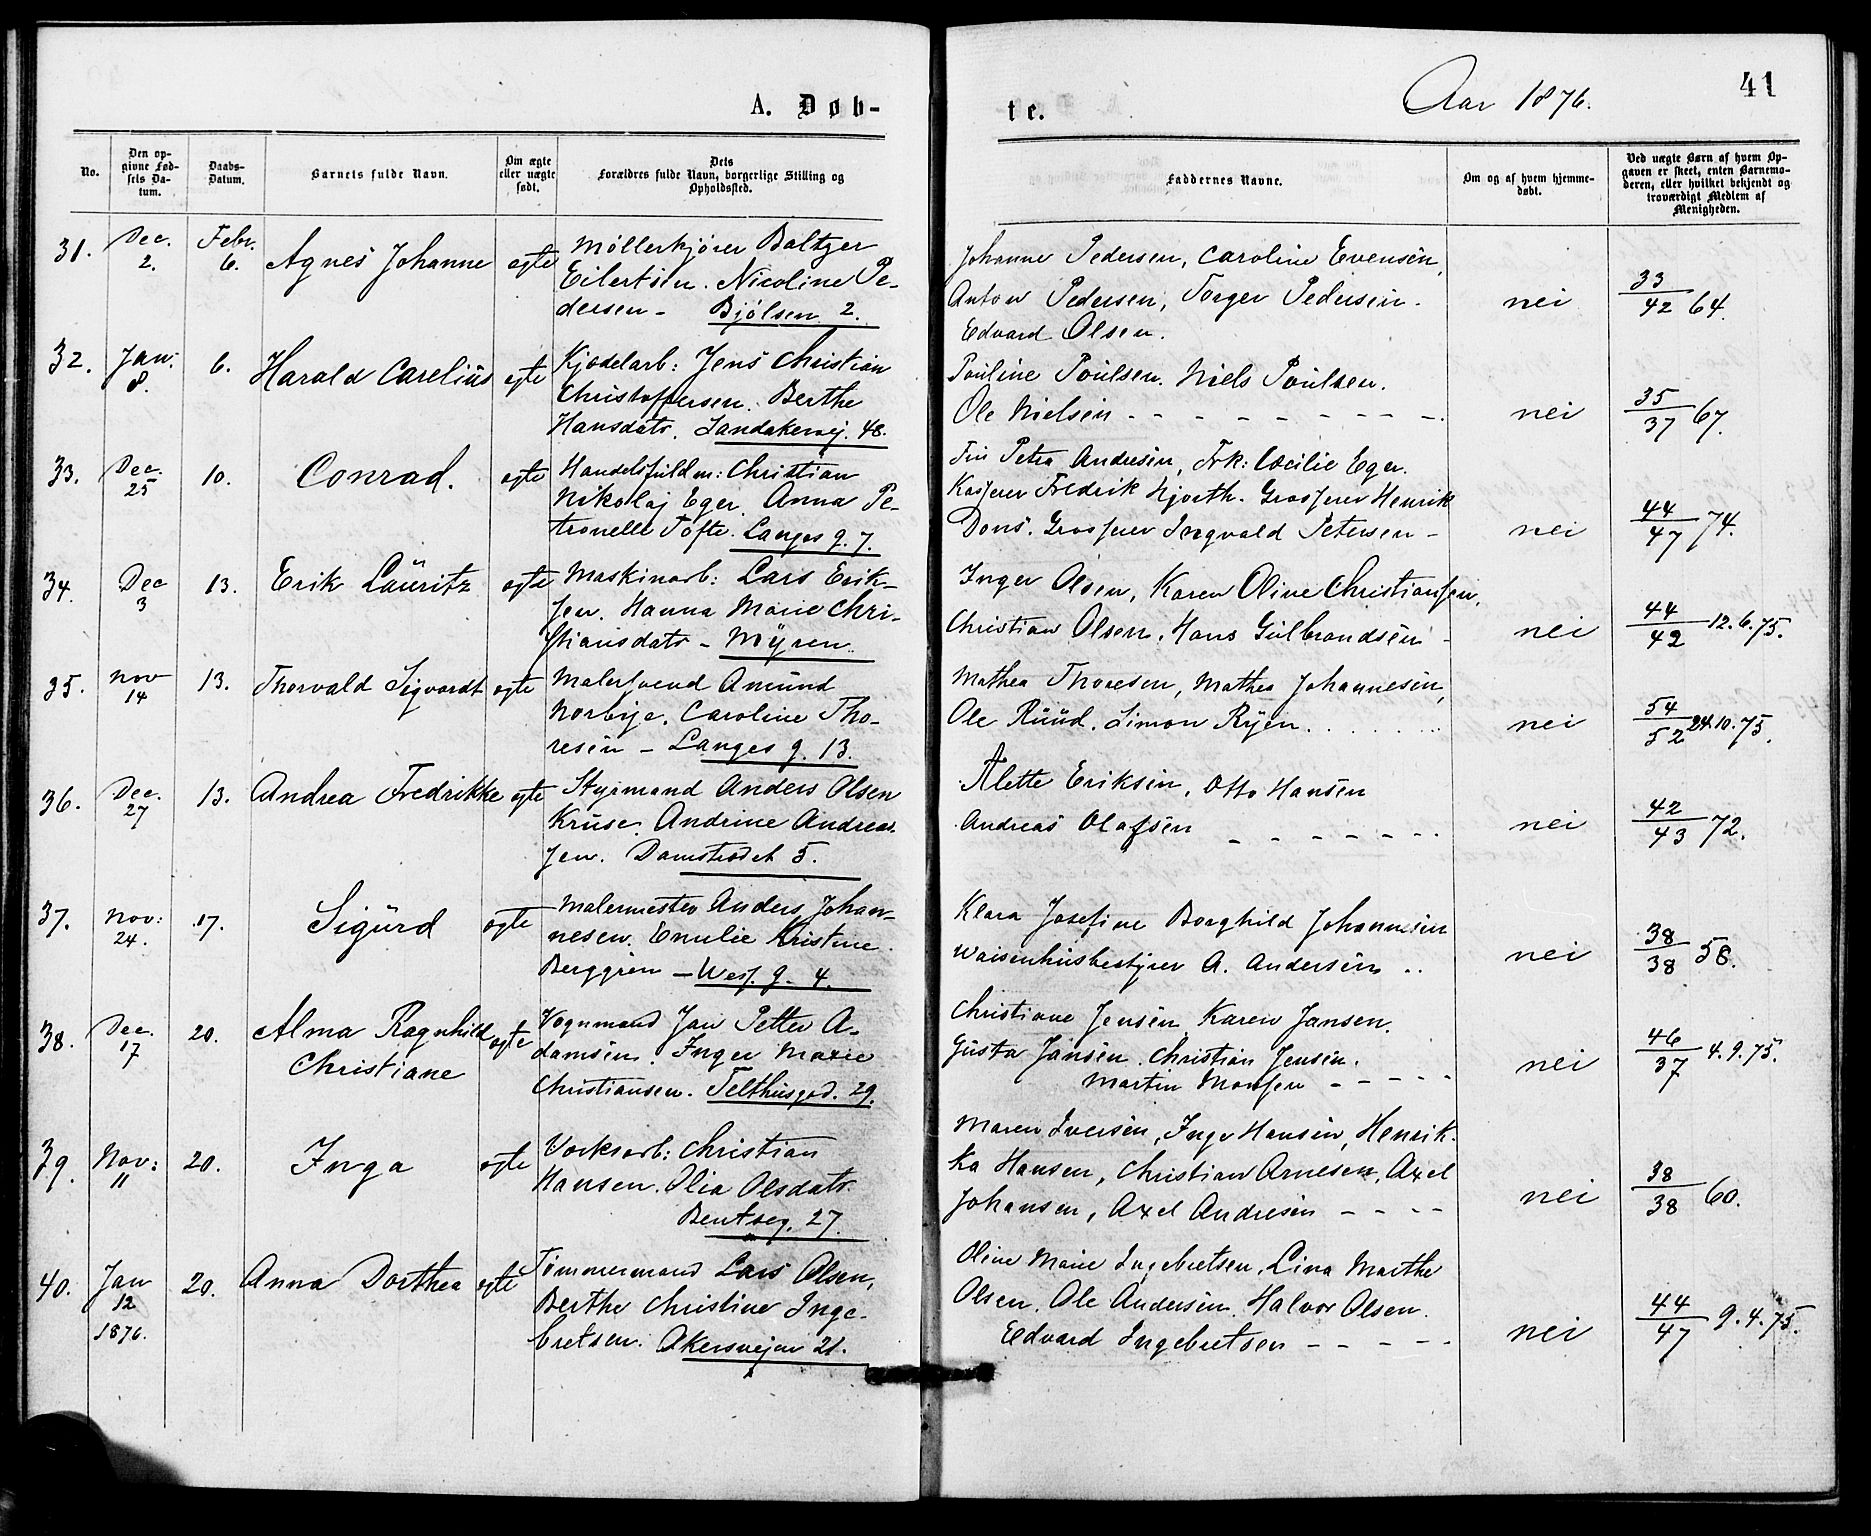 A. Døb-
te.
Aar 1876.
41
No.
Den op-
givne Fød-
sels Da-
tum.
Daabs-
Datum.
Barnets fulde Navn.
Om ægte
eller uægte
født.
Dets
Forældres fulde Navn, borgerlige Stilling og
Opholdssted.
Faddernes Navne.
Om og af hvem hjemme-
døbt.
Ved uægte Børn af hvem Op-
gaven er skeet, enten Barnemo-
deren, eller hvilket bekjendt og
troværdigt Medlem af
Menigheden.
31. Dec. 2. Febr. 6. Agnes Johanne ægte
Møllerkjører Baltzer
Eilertsen. Nicoline Pe-
dersen - Bjølsen 2.
Johanne Pedersen, Caroline Evensen,
Anton Pedersen, Torger Pedersen.
Edvard Olsen.
nei 33/42 64.
32. Jan: 8. 6. Harald Carelius ægte
Kjædelarb: Jens Christian
Christoffersen. Berthe
Hansdatr. Sandakervej. 48.
Pauline Poulsen. Niels Poulsen.
Ole Nielsen - - - - - - - -
nei 35/37 67.
33. Dec. 25 10. Conrad. ægte
Handelsfuldm: Christian
Nikolaj Eger. Anna Pe-
tronelle Tofte. Langes g. 7.
Petra Andresen, Frk: Cæcilie Eger.
Kasserer Fredrik Hjorth. Grosserer Henrik
Dons. Grosserer Ingvald Petersen -
nei 44/47 74.
34. Dec 3 13. Erik Lauritz ægte
Maskinarb: Lars Erik-
sen. Hanna Marie Chri-
stiansdatr - Myren.
Inger Olsen, Karen Oline Christiansen,
Christian Olsen, Hans Gulbrandsen -
nei 44/42 12.6.75.
35. Nov 14 13. Thorvald Sigvardt ægte
Malersvend Amund
Norbye. Caroline Tho-
resen - Langes g. 13.
Mathea Thoresen, Mathea Johannesen,
Ole Ruud. Simon Ryen . . . . . .
nei 54/52 24.10.75.
36. Dec. 27 13. Andrea Fredrikke ægte
Styrmand Anders Olsen
Kruse. Andrine Andreas-
sen. Damstrædet 5.
Alette Eriksen, Otto Hansen
Andreas Olafsen - - - - - - -
nei 42/43 72.
37. Nov: 24. 17. Sigurd ægte
Malermester Anders Johan-
nesen. Emilie Kristine
Berggren - Wess. g. 4.
Klara Josefine Borghild Johannesen
Waisenhusbestyrer A. Andersen . .
nei 38/38 58.
38. Dec. 17 20. Alma Ragnhild ægte
Christiane
Vognmand Jan Petter A-
damsen. Inger Marie
Christiansen. Telthusgad. 29.
Christiane Jensen Karen Jansen.
Gusta Jansen. Christian Jensen.
Martin Monsen - - - - -
nei 46/37 4.9.75.
39. Nov: 11 20. Inga ægte
Værksarb: Christian
Hansen. Olia Olsdatr.
Bentseg. 27.
Maren Iversen, Inge Hansen, Henrik-
ka Hansen, Christian Arnesen, Axel
Johansen, Axel Andresen - - - -
nei 38/38 60.
40. Jan 12 1876. 20. Anna Dorthea ægte
Tømmermand Lars Olsen,
Berthe Christine Inge-
bretsen. Akersvejen 21.
Oline Marie Ingebretsen, Lina Marthe
Olsen. Ole Andersen. Halvor Olsen.
Edvard Ingebretsen - - - - -
nei 44/47 9.4.75.